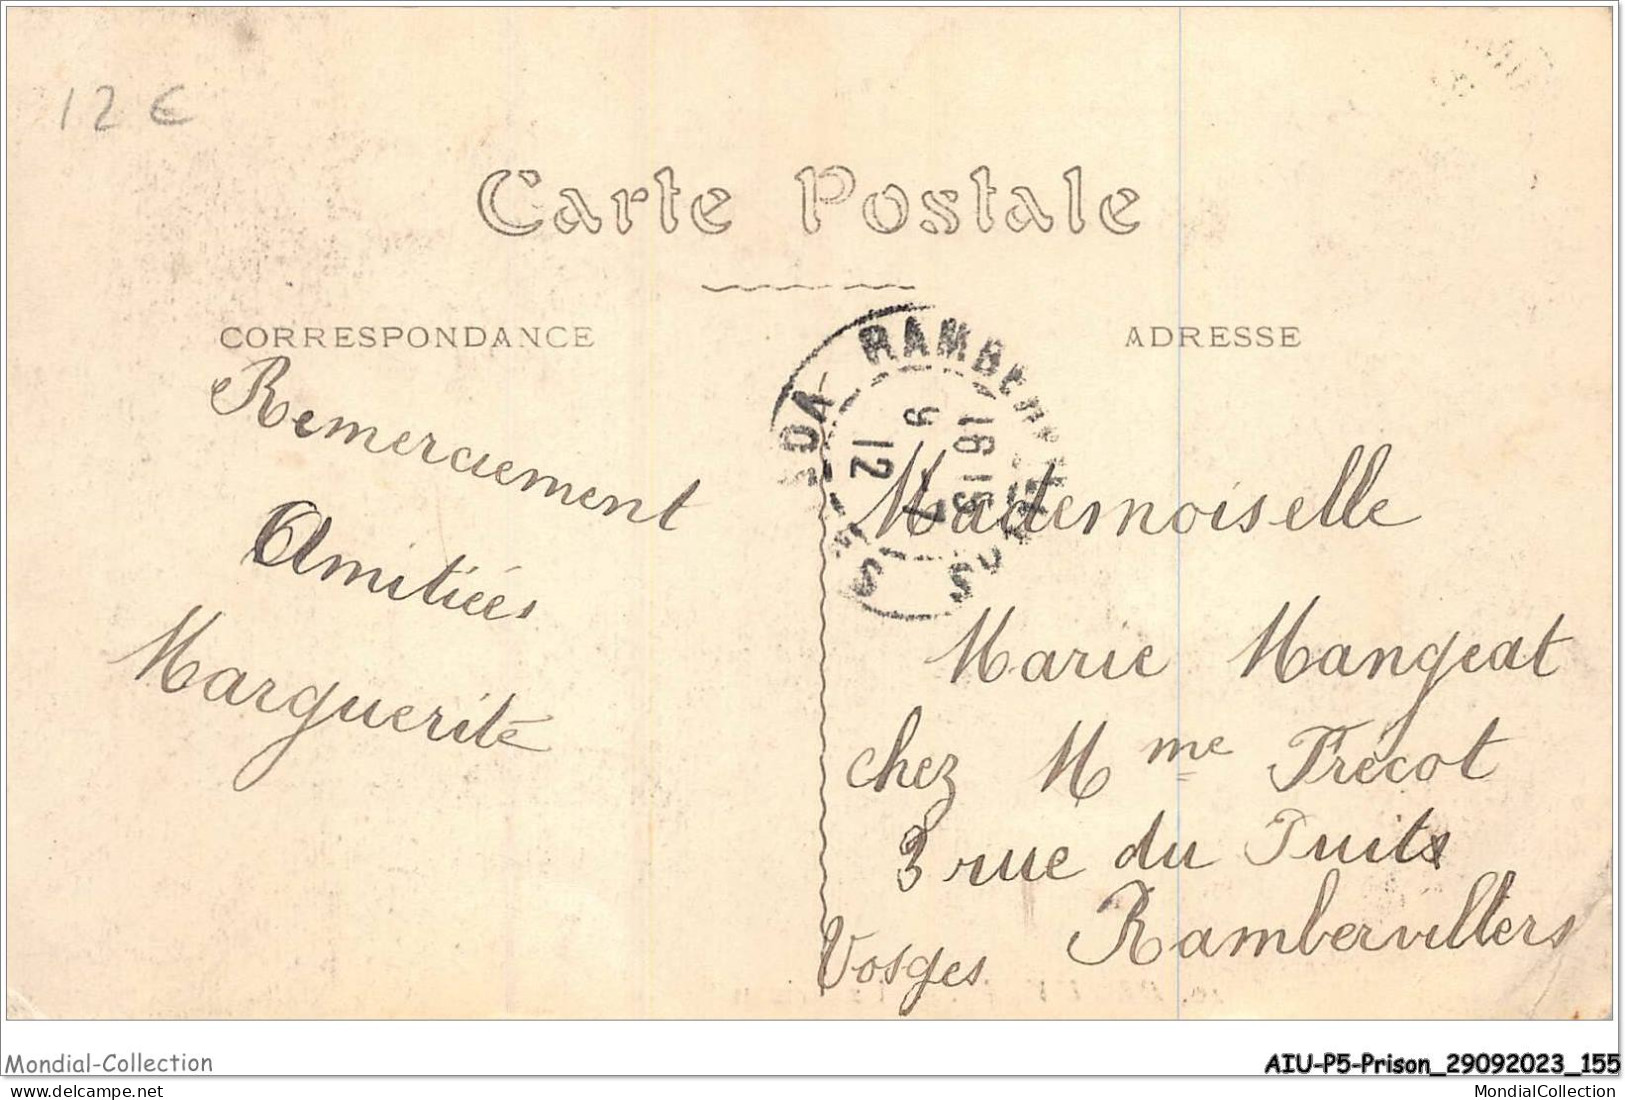 12 €
Carte Postale
CORRESPONDANCE
ADRESSE
Remerciement
Amitiées
Marguerite
RAMBERVILLERS
VOSGES
16 15
9 - 7
12
Mademoiselle
Marie Mangeat
chez Mme Frécot
3 rue du Puits
Rambervillers
Vosges
Mondial-Collection
AIU-P5-Prison_29092023_155
MondialCollection